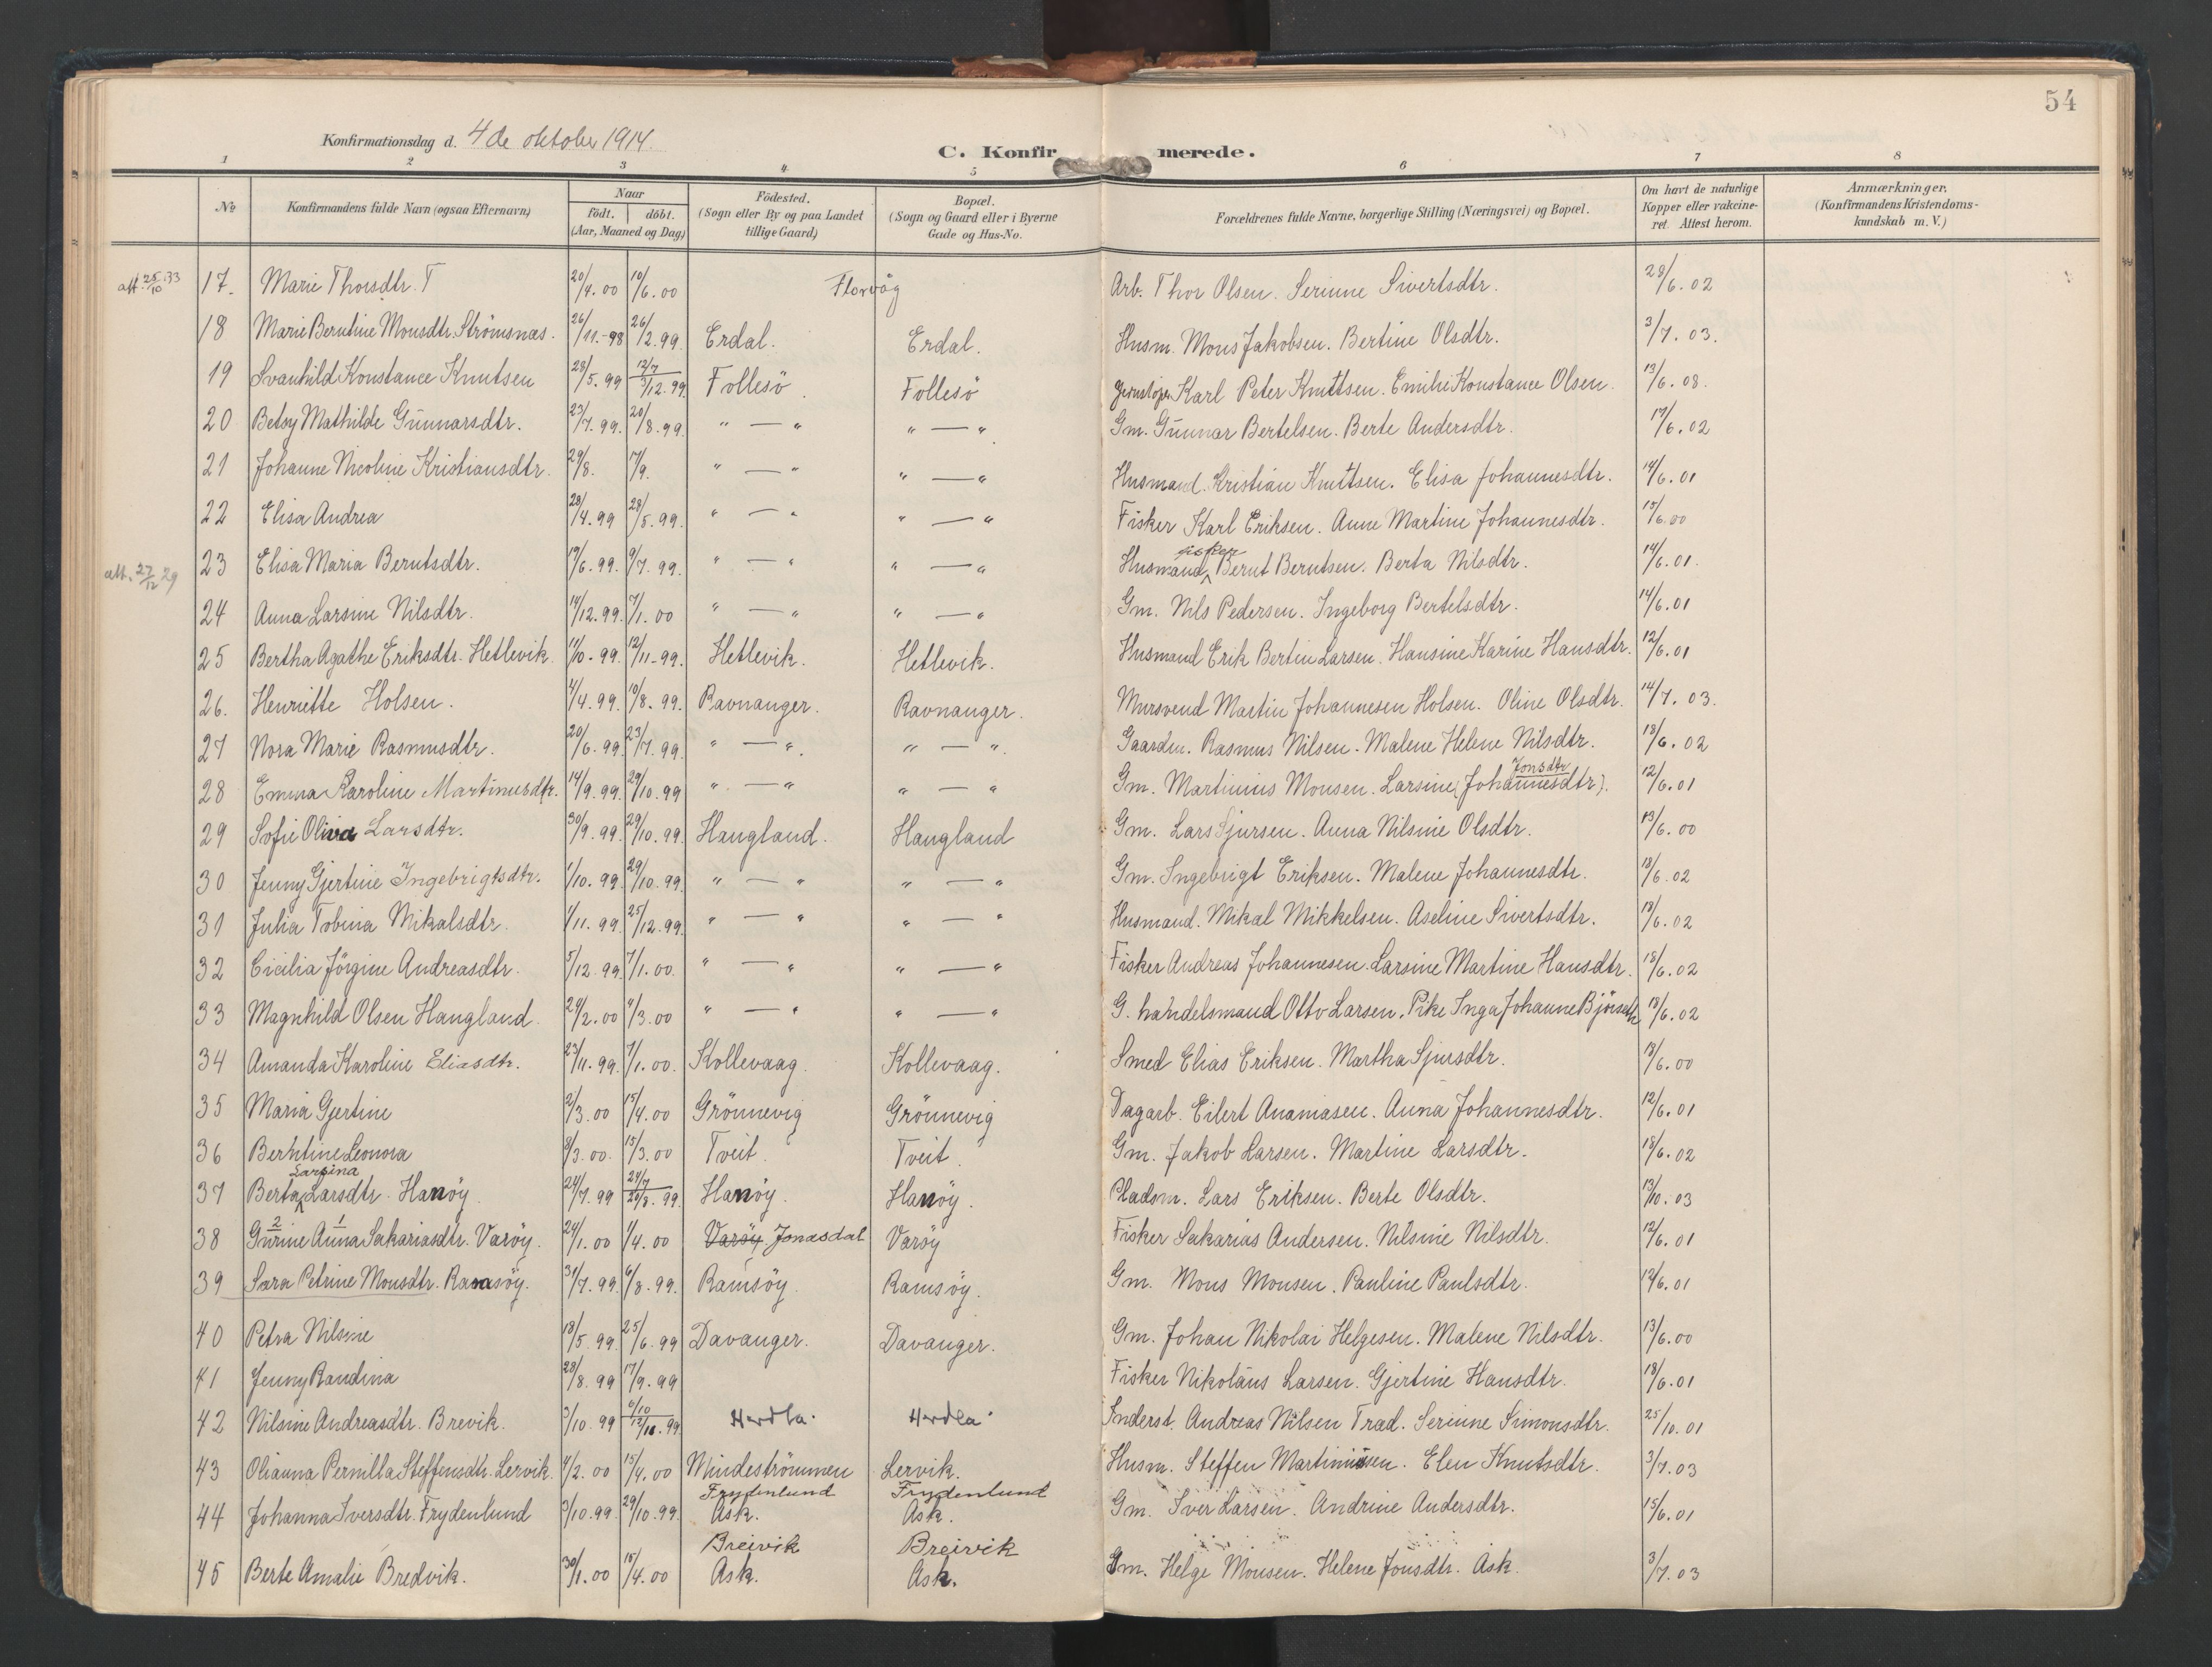 54
Konfirmationsdag d. 4de oktober 1914.
C. Konfirmerede.
1 2 3 4 5 6 7 8
No Konfirmandens fulde Navn (ogsaa Efternavn) Naar födt. döbt. (Aar, Maaned og Dag) Födested. (Sogn eller By og paa Landet tillige Gaard) Bopæl. (Sogn og Gaard eller i Byerne Gade og Hus-No. Forældrenes fulde Navne, borgerlige Stilling (Næringsvei) og Bopæl. Om havt de naturlige Kopper eller vakcineret. Attest herom. Anmærkninger. (Konfirmandens Kristendomskundskab m. V.)
att. 25/10 33 17. Marie Thorsdtr. T 20/4.00 10/6.00 Florvåg Arb. Thor Olsen. Serinne Sivertsdtr. 28/6.02
18 Marie Berntine Monsdtr. Strömsnæs. 26/11.-98 26/2.99 Erdal. Erdal. Husm. Mons Jakobsen. Bertine Olsdtr. 3/7.03.
19 Svanhild Konstance Knutsen 28/5.99 12/7 3/12.99 Follesö Follesö Karl Peter Knutsen. Emilie Konstance Olsen. 13/6.08.
20 Betsy Mathilde Gunnarsdtr. 23/7.99. 20/8.99. " — " " — " Gm. Gunnar Bertelsen. Berte Andersdtr. 17/6.02
21 Johanne Nicoline Kristiansdtr. 29/8. 17/9. " — " " — " Husmand. Kristian Knutsen. Elisa Johannesdtr. 14/6.01
22 Elisa Andrea 28/4.99 28/5.99. " — " " — " Fisker Karl Eriksen. Anne Martine Johannesdtr. 15/6.00
att. 27/12 29 23 Elisa Maria Berntsdtr. 19/6.99. 9/7.99. " — " " — " Husmand, fisker Bernt Berntsen. Berta Nilsdtr. 14/6.01.
24 Anna Larsine Nilsdtr. 14/12.99. 7/1.00 " — " " — " Gm. Nils Pedersen. Ingeborg Bertelsdtr. 14/6.01
25 Bertha Agathe Eriksdtr. Hetlevik. 11/10-99. 12/11-99. Hetlevik. Hetlevik. Husmand Erik Bertin Larsen. Hansine Karine Hansdtr. 12/6.01
26. Henriette Holsen. 4/4.99. 10/8.99. Ravnanger. Ravnanger. Mursvend Martin Johannesen Holsen. Oline Olsdtr. 14/7.03.
27 Nora Marie Rasmusdtr. 20/6.99. 23/7.99 " — ". " — ". Gaardm. Rasmus Nilsen. Malene Helene Nilsdtr. 18/6.02
28 Emma Karoline Martinusdtr. 14/9.99. 29/10.99 " — " " — " Gm. Martinius Monsen. Larsine (Johannesdtr). Jonsdtr 12/6.01
29 Sofie Oliva Larsdtr. 30/9.99. 29/10.99 Haugland. Haugland Gm. Lars Sjursen. Anna Nilsine Olsdtr. 13/6.00
30 Jenny Gjertine Ingebrigtsdtr. 1/10.99. 29/10.99. " — " " — " Gm. Ingebrigt Eriksen. Malene Johannesdtr. 18/6.02
31 Julia Tobina Mikalsdtr. 1/11.99. 25/12.99. " — " " — " Husmand. Mikal Mikkelsen. Aseline Sivertsdtr. 18/6.02
32 Cicilia Jörgine Andreasdtr. 5/12.99. 7/1.00. " — " " — " Fisker Andreas Johannesen. Larsine Martine Hansdtr. 18/6.02
33 Magnhild Olsen Haugland. 24/2.00 4/3.00 " — " " — " G. handelsmand Otto Larsen. Pike Inga Johanne 18/6.02
34 Amanda Karoline Eliasdtr. 23/11.99. 7/1.00. Kollevaag. Kollevaag. Smed Elias Eriksen. Martha Sjursdtr. 13/6.00
35 Maria Gjertine 2/3.00 15/4.00 Grönnevig Grönnevig Dagarb. Eilert Ananiasen. Anna Johannesdtr. 12/6.01
36 Berntine Leonora 8/3.00. 15/3.00 Tveit. Tveit. Gm. Jakob Larsen. Martine Larsdtr. 18/6.02
37 Berta Larsina Larsdtr. Hanöy. 24/7.99 24/7 20/8.99. Hanöy. Hanöy. Pladsm. Lars Eriksen. Berte Olsdtr. 13/10.03
38 Gurine 2 Anna 1 Sakariasdtr. Varöy. 24/1.00 1/4.00 Varöy. Jonasdal Varöy Fisker Sakarias Andersen. Nilsine Nilsdtr. 12/6.01
39 Sara Petrine Monsdtr. Ramsöy. 31/7.99. 6/8.99. Ramsöy. Ramsöy. Gm. Mons Monsen. Pauline Paulsdtr. 12/6.01
40 Petra Nilsine 18/5.99. 25/6.99 Davanger. Davanger. Gm. Johan Nikolai Helgesen. Malene Nilsdtr. 13/6.00
41 Jenny Randina 28/8.99 17/9.99 Fisker Nikolaus Larsen. Gjertine Hansdtr. 18/6.01
42 Nilsine Andreasdtr. Brevik. 3/10.99 Herdla. Herdla. Inderst. Andreas Nilsen Træd. Serinne Simonsdtr. 25/10.01
43 Olianna Pernilla Steffensdtr. Lervik. 4/2.00 15/4.00 Mindeströmmen Lervik. Husm. Steffen Martiniusen. Elen Knutsdtr. 3/7.03
44 Johanna Iversdtr. Frydenlund 3/10.99. 29/10.99. Frydenlund Ask. Frydenlund Ask. Gm. Iver Larsen. Andrine Andersdtr. 15/6.01
45 Berte Amalie Bredvik. 30/1.00 15/4.00 Breivik Ask. Breivik Ask. Gm. Helge Monsen. Helene Jonsdtr. Ask. 3/7.03